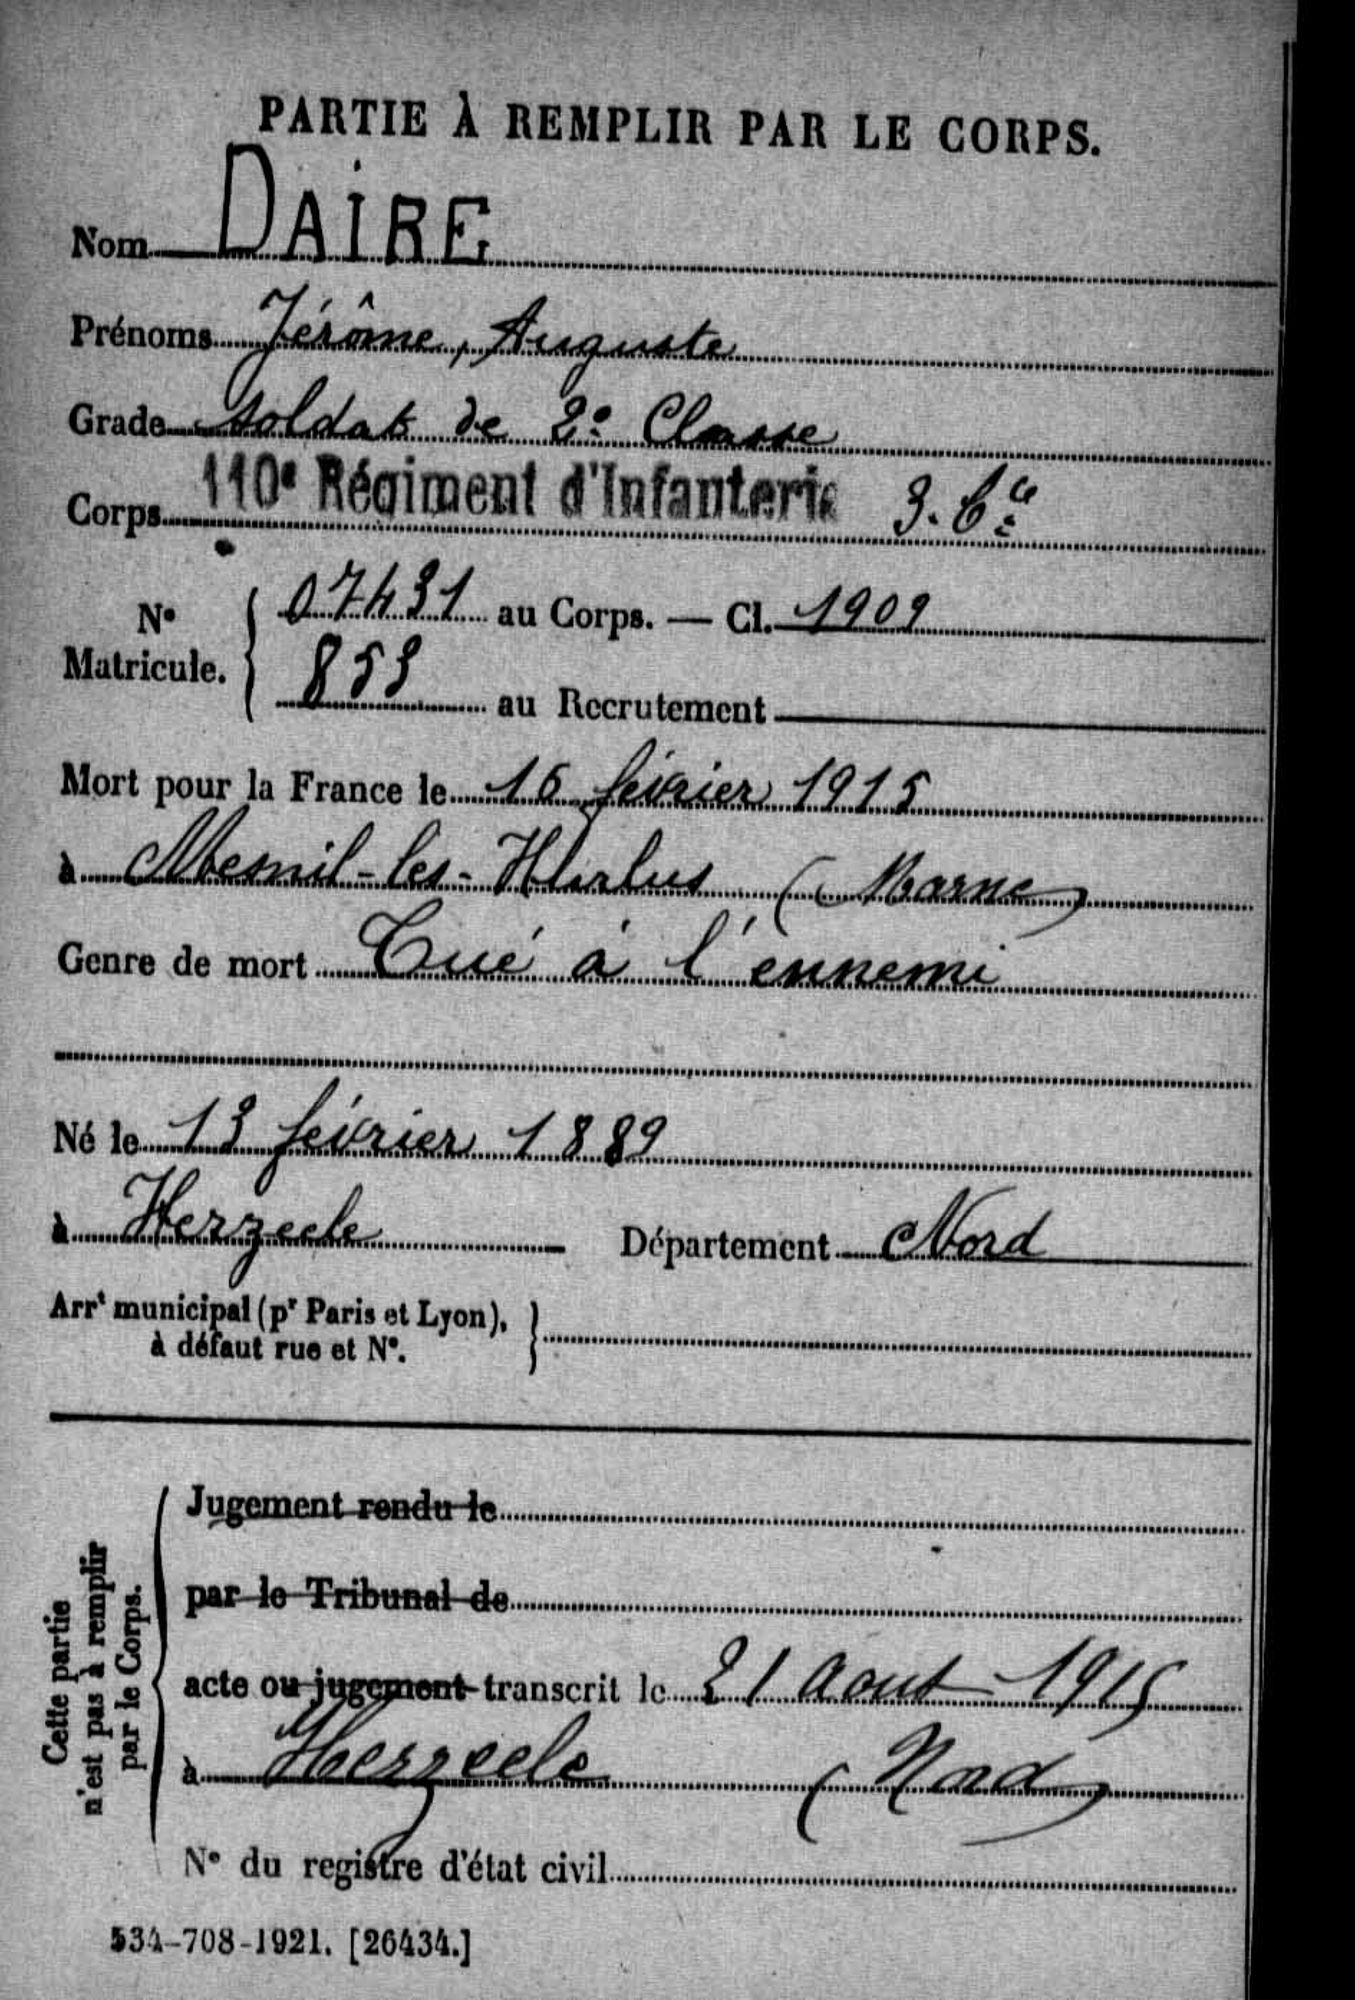 PARTIE À REMPLIR PAR LE CORPS.
Nom DAIRE
Prénoms Jérôme, Auguste
Grade soldat de 2e Classe
Corps 110e Régiment d'Infanterie 3. Cie
No Matricule. 07431 au Corps. — Cl. 1909
853 au Recrutement
Mort pour la France le 16 février 1915
à Mesnil-les-Hurlus (Marne)
Genre de mort Tué à l'ennemi
Né le 13 février 1889
à Herzeele Département Nord
Arrt municipal (pr Paris et Lyon),
à défaut rue et No.
Cette partie
n'est pas à remplir
par le Corps.
Jugement rendu le
par le Tribunal de
acte ou jugement transcrit le 21 Aout 1915
à Herzeele (Nord)
No du registre d'état civil
534-708-1921. [26434.]